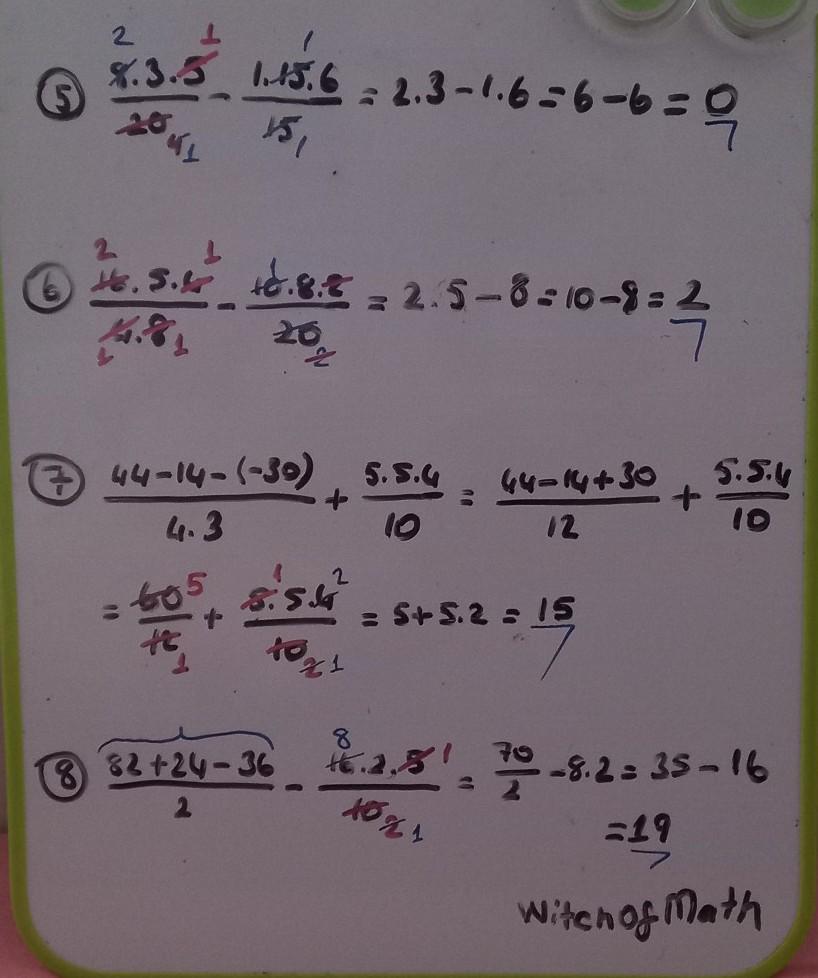 2 1 1
⑤ 8.3.5/20 - 1.15.6/15 = 2.3-1.6=6-6=0
4 1 1
2 1 1
⑥ 16.5.4/4.8 - 10.8.2/20 = 2.5-8=10-8=2
1 1 2
⑦ 44-14-(-30)/4.3 + 5.5.4/10 = 44-14+30/12 + 5.5.4/10
= 60/12 + 5.5.4/10 = 5+5.2 = 15
5 1 2
1 2 1
8 1
⑧ 82+24-36/2 - 16.2.5/10 = 70/2 -8.2= 35-16
2 1
=19
Witch of Math